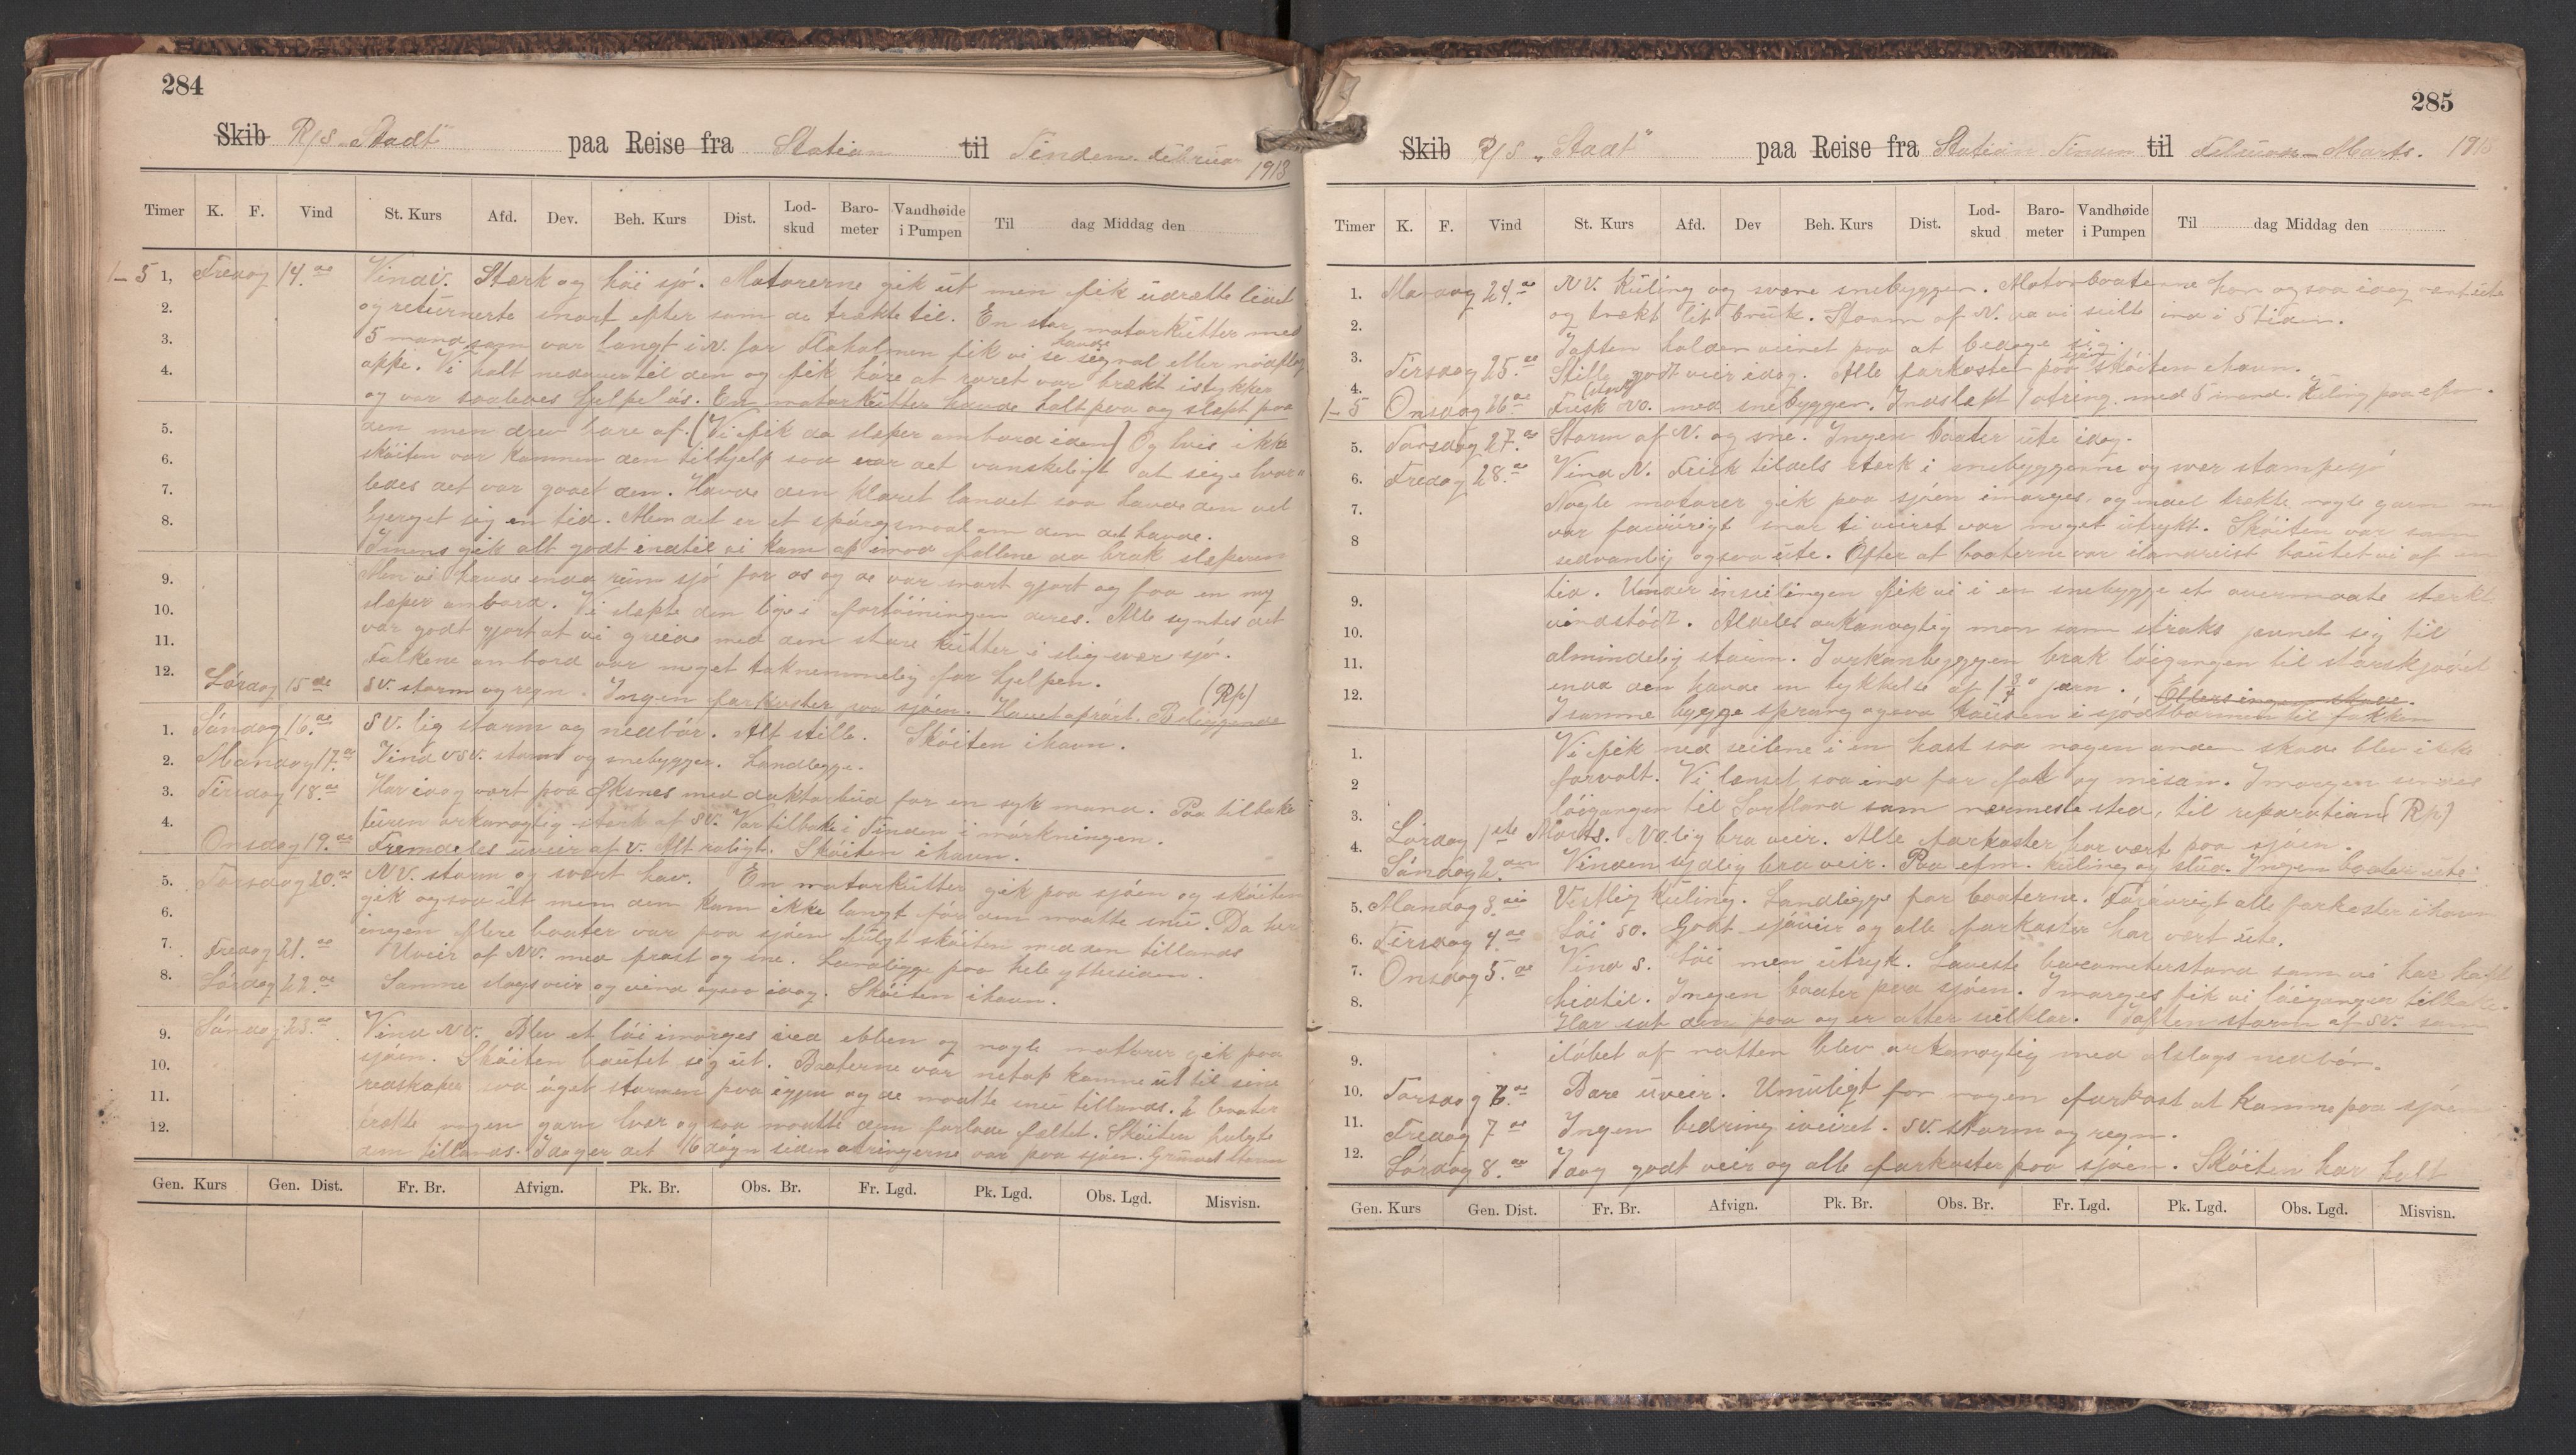 284
Skib R/S „Stadt" paa Reise fra Station til Tinden. Februar 1913
Timer K. F. Vind St. Kurs Afd. Dev. Beh. Kurs Dist. Lod-skud Baro-meter Vandhøide i Pumpen Til dag Middag den
1-5 1, Fredag 14.de Vind V. Stærk og höi sjö. Motorerne gik ut men fik utrætte lidet
2. og returnerte snart efter som de trakte til. En stor motorkutter med
3. 5 mand som var langt i N. for Flaholmen fik vi se havde signal eller nødflag
4. oppe. Vi holt nedover til den og fik höre at roret var brækt istykker
og var saaledes hjelpelös. En motorkutter havde holt paa og slæpt paa
5. den men drev bare af. (Vi fik da slæper ombord i den) Og hvis ikke
6. sköiten var kommen den tilhjelp saa var det vanskeligt at sige hvor"
7. ledes det var gaaet den. Havde den klaret landet saa havde den vel
8. bjerget sig en tid. Men det er et spörgsmaal om den det havde.
Imens gik alt godt indtil vi kom op imod fallene da brak slæperen
9. Men vi havde enda rum sjö for os og de var snart gjort og faa en ny
10. slæper ombord. Vi slæpte den lige i fortöiningen deres. Alle syntes det
11. var godt gjort at vi greide med den store kutter i slig svær sjö.
12. Folkene ombord var meget taknemmelig for hjelpen. (Rp)
Lördag 15de SV. storm og regn. Ingen farkoster paa sjöen. Havet oprört. Beliggende
1. Söndag 16.de SV. lig storm og nedbör. Alt stille. Sköiten i havn.
2. Mandag 17.de Vind VSV. storm og snebygger. Landligge.
3. Tirsdag 18.de Har idag vært paa Öksnes med doktorbud for en syk mand. Paa tilbake
4. turen orkanagtig stærk af SV. Var tilbake i Tinden i mörkningen.
Onsdag 19.de Fremdeles uveir af V. Alt roligt. Sköiten i havn.
5. Torsdag 20.de NV. storm og svært hav. En motorkutter gik paa sjöen og sköiten
6. gik ogsaa ut men den kom ikke langt för den maatte snu. Da her
7. ingen flere baater var paa sjöen fulgt sköiten med den tillands
Fredag 21.de Uveir af NV. med frost og sne. Landligge paa hele yttersiden.
8. Lördag 22.de Samme slags veir og vind ogsaa idag. Sköiten i havn.
9. Söndag 23.de Vind NV. Blev et löi imorges ved ebben og nogle motorer gik paa
10. sjöen. Sköiten bautet sig ut. Baaterne var netop komne ut til sine
11. redskaper saa öget stormen paa igjen og de maatte snu tillands. 2 baater
12. trækte nogen garn hver og saa maatte dem forlade feltet. Sköiten fulgte
dem tillands. Idag er det 16 dögn siden otringerne var paa sjöen. Grundet storm
Gen. Kurs Gen. Dist. Fr. Br. Afvign. Pk. Br. Obs. Br. Fr. Lgd. Pk. Lgd. Obs. Lgd. Misvisn.
285
Skib R/S „Stadt" paa Reise fra Station Tinden til Februar – Marts. 1913
Timer K. F. Vind St. Kurs Afd. Dev Beh. Kurs Dist. Lod-skud Baro-meter Vandhøide i Pumpen Til dag Middag den
1. Mandag 24.de NV. Kuling og svære snebygger. Motorbaaterne har ogsaa idag vært ute
2. og trækt lit bruk. Storm af N. da vi seilte ind i 5 tiden.
3. Iaften holder veiret paa at bedage sig.
Tirsdag 25.de Stille godt veir idag. Alle farkoster paa sjöen sköiten i havn.
4.
1-5 Onsdag 26.de Frisk NO. med snebygger. Indslæpt 1 otring. med 5 mand. Kuling paa efm.
5. Torsdag 27.de Storm af N. og sne. Ingen baater ute idag.
6. Fredag 28.de Vind N. Frisk tildels sterk i snebyggerne og svær stampesjö
7. Nogle motorer gik paa sjöen imorges. og endel trækte nogle garn
var saa veiret var meget utrykt. Sköiten var som
8 sedvanlig ogsaa ute. Efter at baaterne var ilandreist bautet vi af en
9. tid. Under inseilingen fik vi i en snebygge et overmaate sterkt
10. vindstöd. Aldeles orkanagtig men som straks jevnet sig til
11. almindelig storm. I orkanbyggen brak löigangen til storskjödet
12. enda den havde en tykkelse af 1¾" jern. Ellers ingen skade.
I samme bygge sprang ogsaa kausen i sjödbarmen til fokken
1. Vi fik ned seilene i en hast saa nogen anden skade blev ikke
2 forvoldt. Vi lænset saa ind for fok og misan. Imorgen sendes
3. löigangen til Sortland som nærmeste sted, til reparation (Rp)
4. Lördag 1ste Marts. NO.lig bra veir. Alle farkoster har vært paa sjöen.
Söndag 2.den Vinden sydlig bra veir. Paa efm. kuling og slud. Ingen baater ute.
5. Mandag 3.die Vestlig Kuling. Landligge for baaterne. Forövrigt alle farkoster i havn
6. Tirsdag 4.de Löi SO. Godt sjöveir og alle farkoster har vært ute.
7. Onsdag 5.de Vind S. löi men utryk. Laveste barometerstand som vi har hatt
8. hidtil. Ingen baater paa sjöen. Imorges fik vi löigangen tilbake.
Har sat den paa og er atter seilklar. Iaften storm af SV. som
9. ilöbet af natten blev orkanagtig med alslags nedbör.
10. Torsdag 6.de Bare uveir. Umuligt for nogen farkost at komme paa sjöen
11. Fredag 7de Ingen bedring i veiret. SV. storm og regn.
12. Lördag 8.de Idag godt veir og alle farkoster paa sjöen. Sköiten har holt
Gen. Kurs Gen. Dist. Fr. Br. Afvign. Pk. Br. Obs. Br. Fr. Lgd. Pk. Lgd. Obs. Lgd. Misvisn.